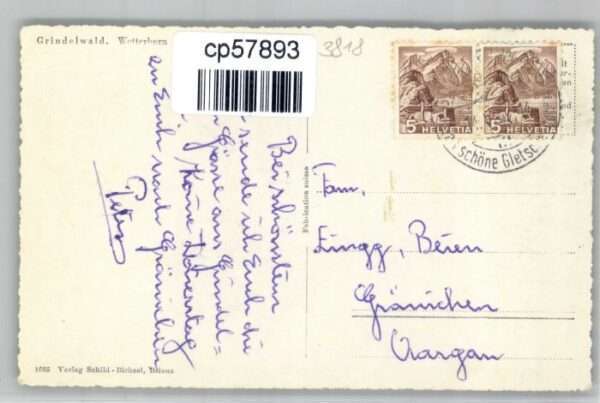 Grindelwald. Wetterhorn
cp57893
3818
5 HELVETIA
5 HELVETIA
Schöne Gletsc
Bei schönstem
sende ich Euch die
Grüsse aus Grindel=
Komme Donnerstag
zu Euch nach Gränichen
Peter
Fabrication suisse
Fam.
Lingg, Beien
Gränichen
Aargau
1025 Verlag Schild-Bichsel, Brienz